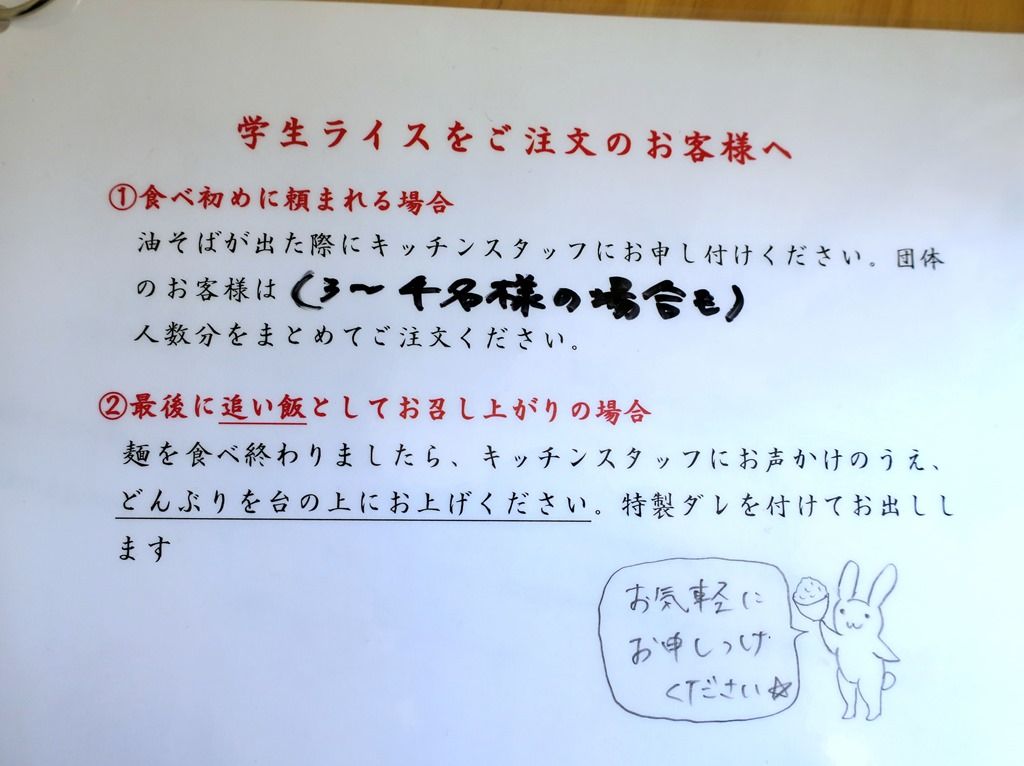 学生ライスをご注文のお客様へ
①食べ初めに頼まれる場合
油そばが出た際にキッチンスタッフにお申し付けください。団体
のお客様は(3〜4名様の場合も)
人数分をまとめてご注文ください。
②最後に追い飯としてお召し上がりの場合
麺を食べ終わりましたら、キッチンスタッフにお声かけのうえ、
どんぶりを台の上にお上げください。特製ダレを付けてお出しし
ます
お気軽に
お申しつけ
ください☆